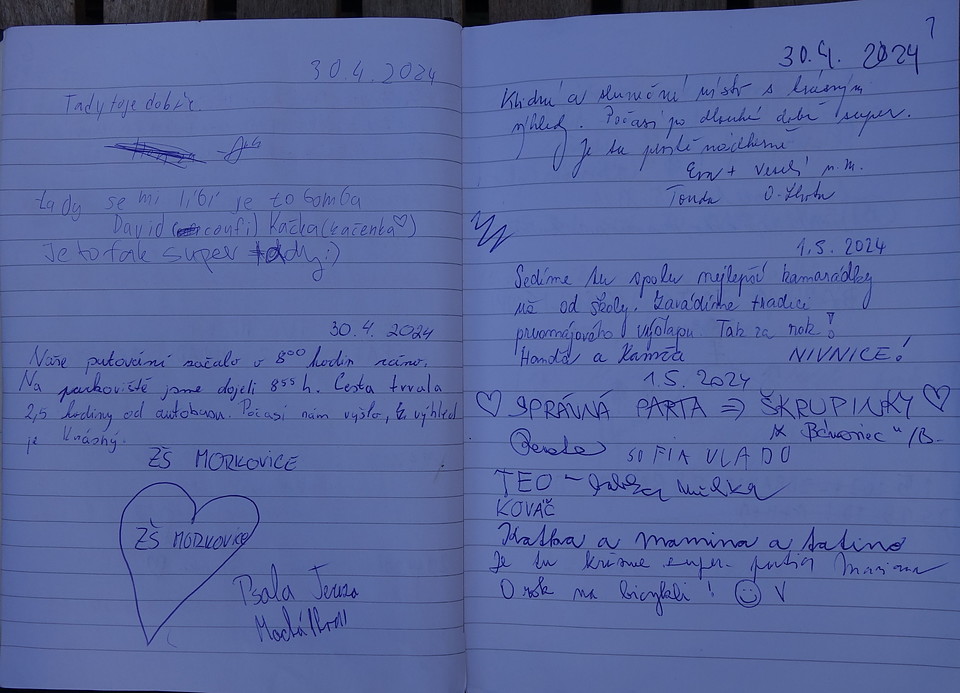 30.4.2024
Tady to je dobře
tady se mi líbí je to bomba
David ( confi) Kačka(kačenka♡)
Je to fak super tady:)
30.4.2024
Naše putování začalo v 8⁰⁰ hodin ráno.
Na parkoviště jsme dojeli 8⁵⁵ h. Cesta trvala
2,5 hodiny od autobusu. Počasí nám vyšlo, výhled
je krásný.
ZŠ MORKOVICE
ZŠ MORKOVICE
Psala Tereza
7
30.4.2024
Klidné a slunečné místo s krásným
výhledy. Počasí po dlouhé době super.
Je tu prostě nádherně
Eva + Veselí n.M.
Tonda O. Lhota
1.5.2024
Sedíme tu spolu nejlepší kamarádky
už od školy. Zavádíme tradici
prvomájového výšlapu. Tak za rok!
Handa a Kamča NIVNICE!
1.5.2024
♡ SPRÁVNÁ PARTA => ŠKRUPINKY ♡
SOFIA VLADO
TEO -
KOVÁČ
Katka a mamina a tatino
Je tu krásne super
O rok na bicykli! ☺ V